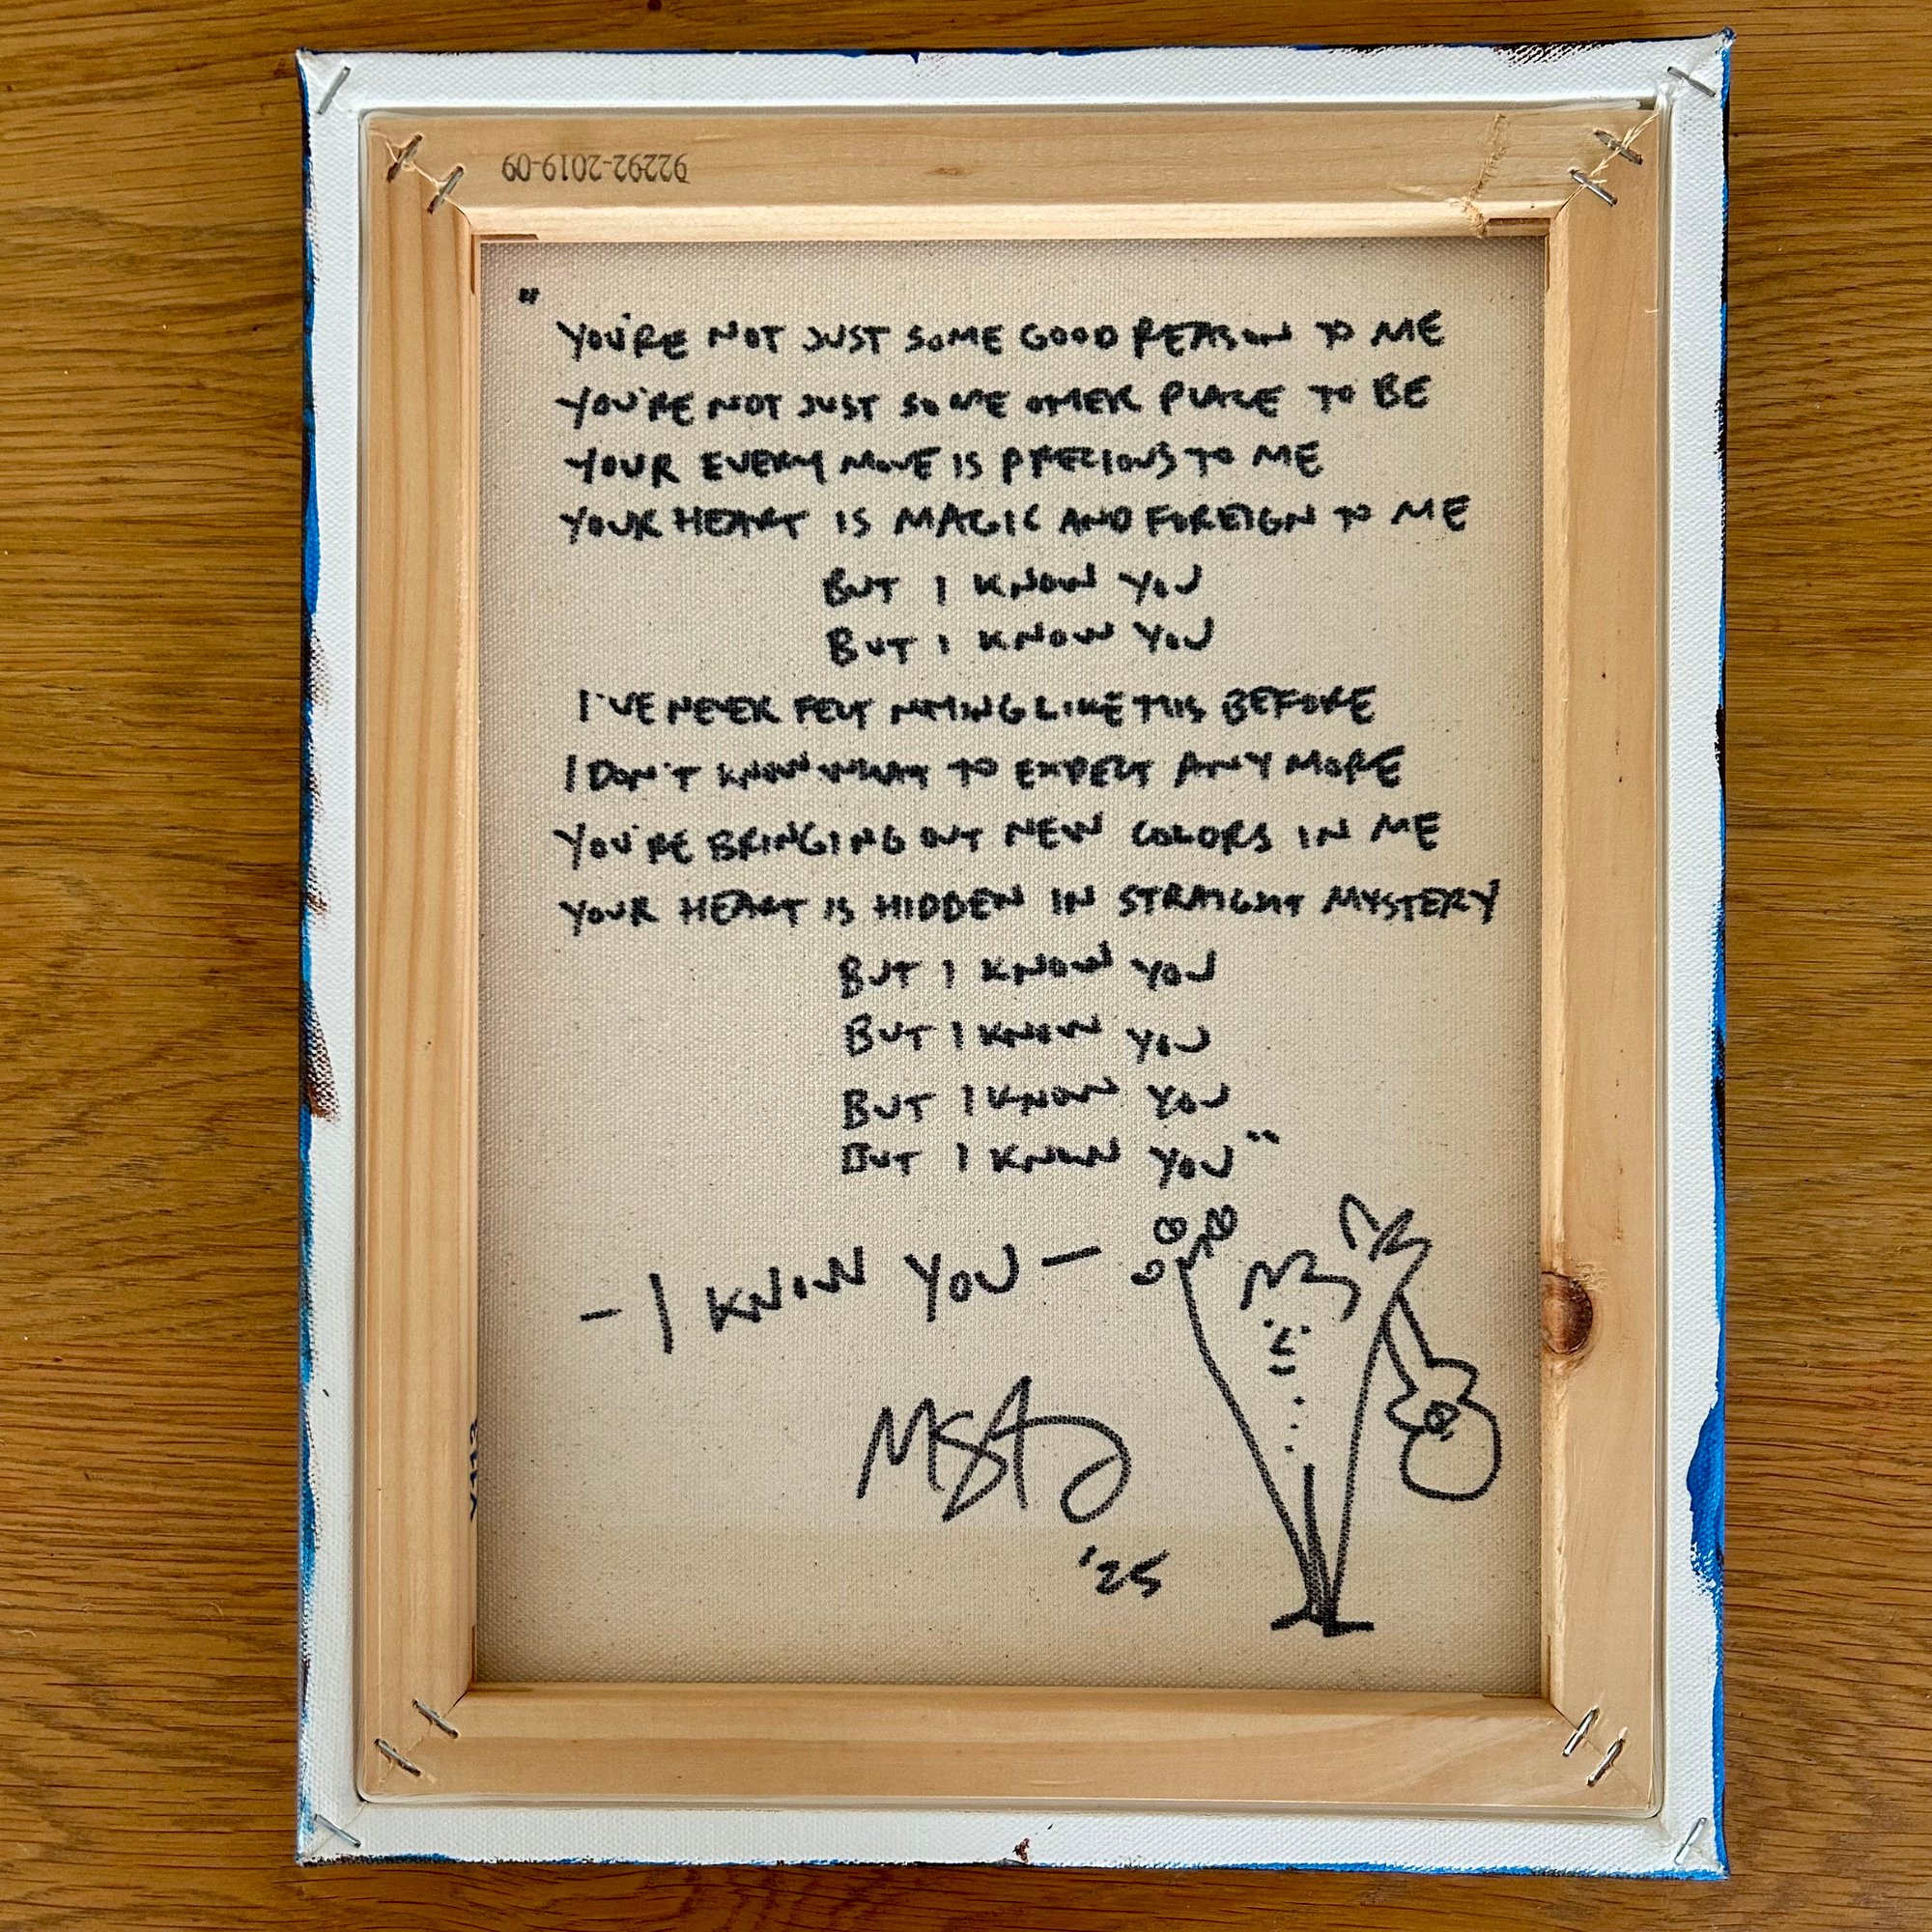 92292-2019-09
"
YOU'RE NOT JUST SOME GOOD REASON TO ME
YOU'RE NOT JUST SOME OTHER PLACE TO BE
YOUR EVERY MOVE IS PRECIOUS TO ME
YOUR HEART IS MAGIC AND FOREIGN TO ME
BUT I KNOW YOU
BUT I KNOW YOU
I'VE NEVER FELT NOTHING LIKE THIS BEFORE
I DON'T KNOW WHAT TO EXPECT ANY MORE
YOU'RE BRINGING OUT NEW COLORS IN ME
YOUR HEART IS HIDDEN IN STRAIGHT MYSTERY
BUT I KNOW YOU
BUT I KNOW YOU
BUT I KNOW YOU
BUT I KNOW YOU"
- I KNOW YOU -
'25